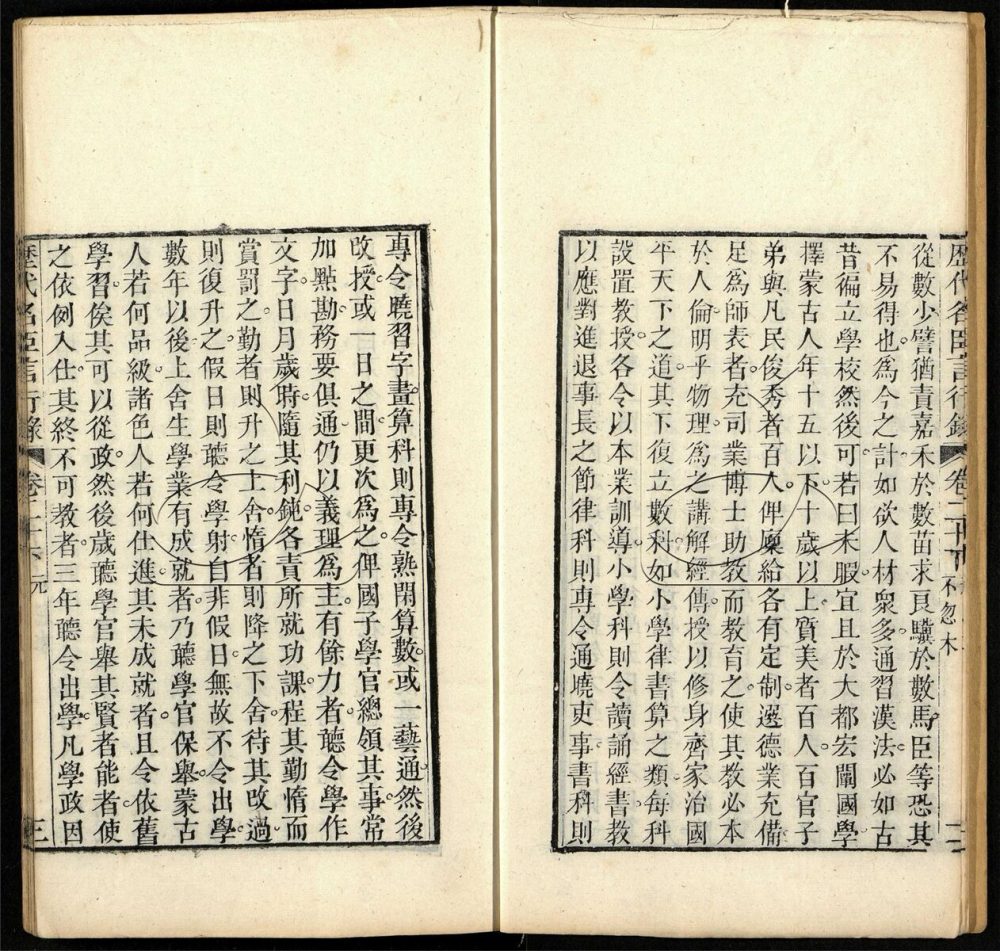 歷代名臣言行錄 卷二十 不忽木
從數少譬猶責嘉禾於數苗求良驥於數馬臣等恐其
不易得也。爲今之計如欲人材衆多通習漢法必如古
昔徧立學校然後可若曰未暇宜且於大都宏闡國學
擇蒙古人年十五以下十歲以上質美者百人。百官子
弟與凡民俊秀者百人俾廩給各有定制。選德業充備
足爲師表者充司業博士助教而教育之。使其教必本
於人倫明乎物理。爲之講解經傳授以修身齊家治國
平天下之道。其下復立數科如小學律書算之類。每科
設置教授。各令以本業訓導。小學科則令讀誦經書。教
以應對進退事長之節律科則專令通曉吏事。書科則
專令曉習字畫。算科則專令熟閑算數。或一藝通然後
改授。或一日之間更次爲之。俾國子學官總領其事。常
加點勘。務要俱通。仍以義理爲主。有餘力者。聽令學作
文字。日月歲時。隨其利鈍。各責所就功課。程其勤惰而
賞罰之。勤者則升之上舍。惰者則降之下舍。待其改過
則復升之。假日則聽令學射。自非假日無故不令出學
數年以後上舍生學業有成就者。乃聽學官保舉。蒙古
人若何品級。諸色人若何仕進。其未成就者。且令依舊
學習。俟其可以從政。然後歲聽學官舉其賢者能者使
之依例入仕。其終不可教者。三年聽令出學。凡學政因
歷代名臣言行錄 卷二十 元 三